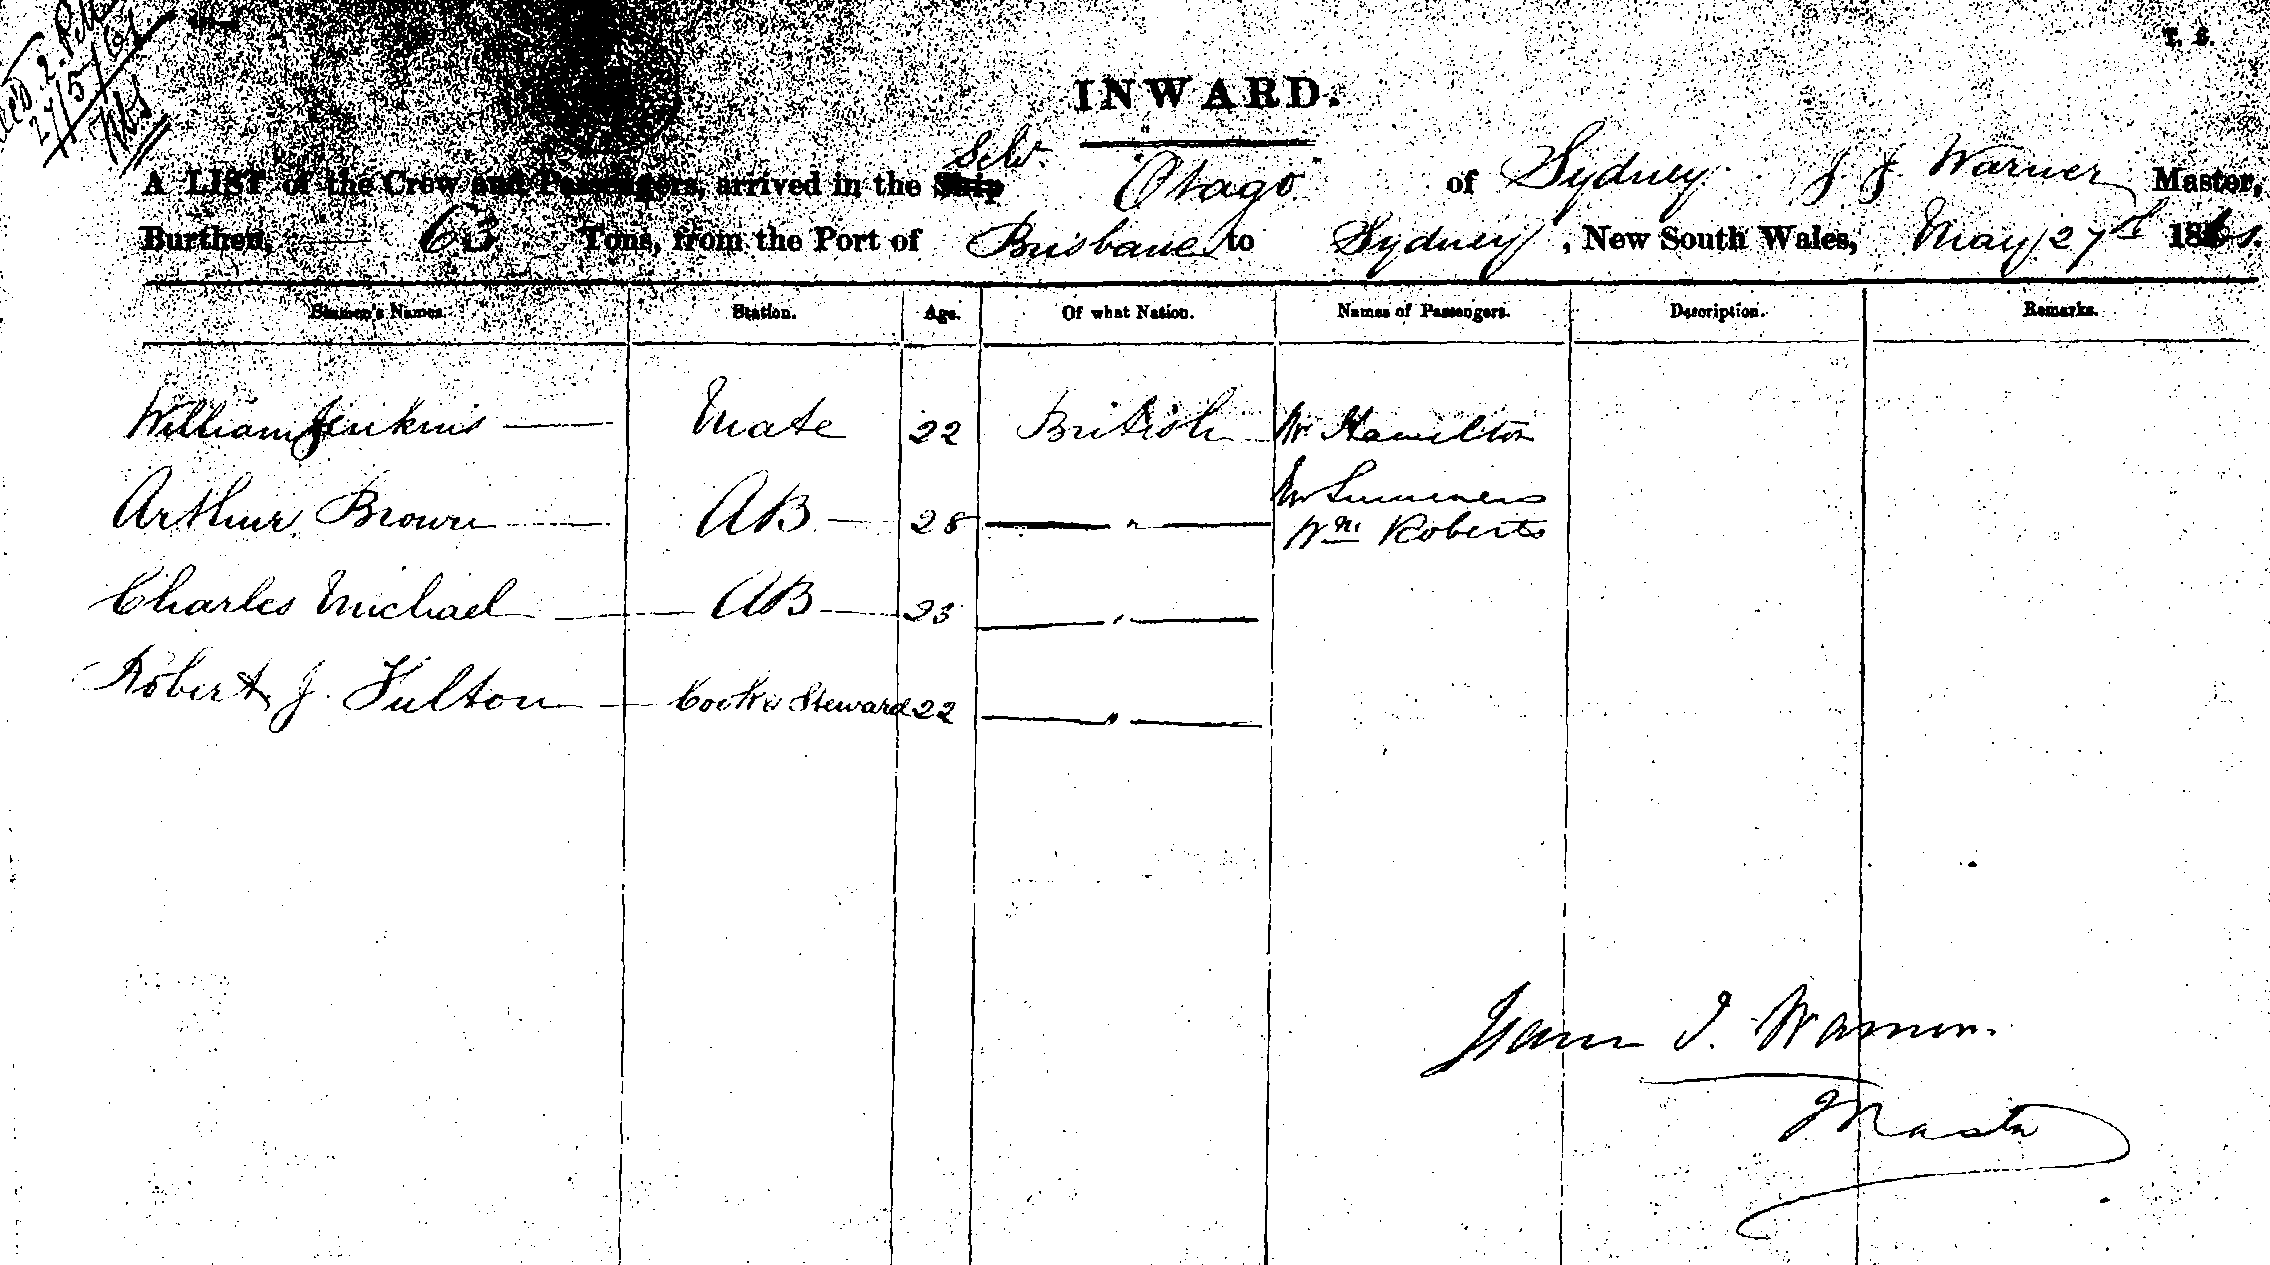 2. P.M
27/5/61
T. S.
INWARD.
Schr.
A LIST of the Crew and Passengers, arrived in the Ship "Otago" of Sydney J J Warner Master,
Burthen, 63 Tons, from the Port of Brisbane to Sydney, New South Wales, May 27th 1861.
Seamen's Names. Station. Age. Of what Nation. Names of Passengers. Description. Remarks.
William Jenkins — Mate 22 British Mr Hamilton
Mr Summers
Arthur Brown — AB — 28 — " —
Wm Roberts
Charles Michael — AB — 23 — " —
Robert J. Fulton — Cook & Steward 22 — " —
J. Warner.
Master